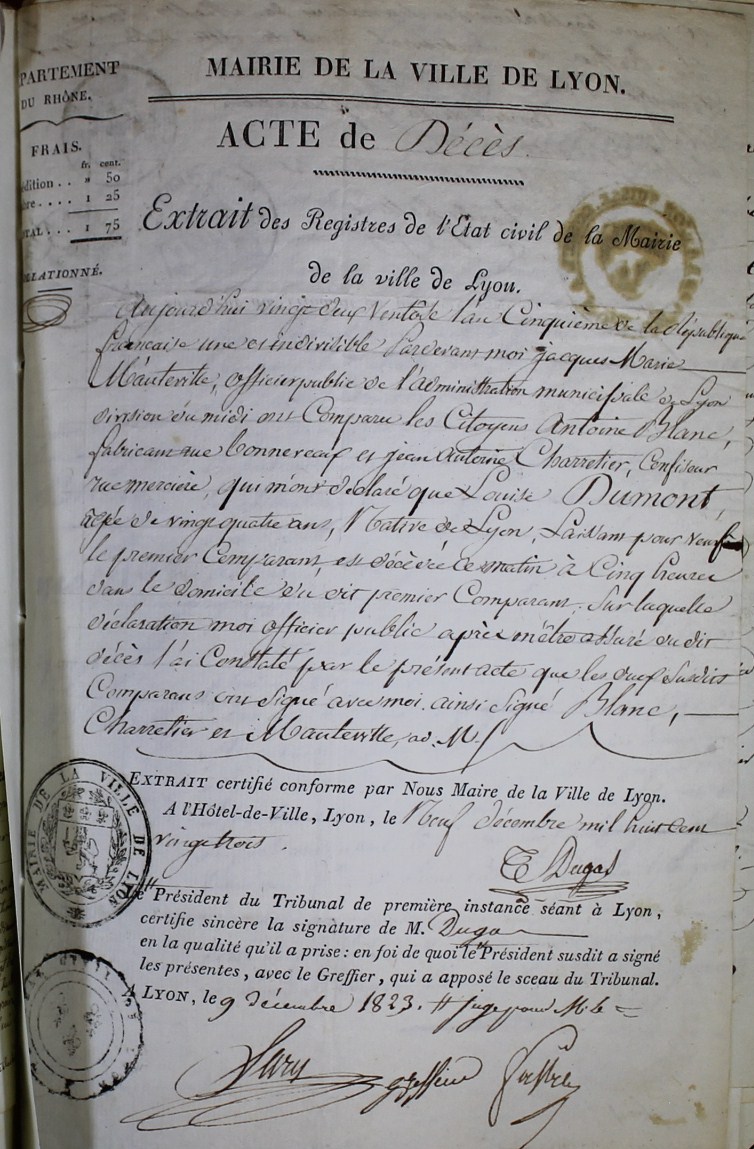 MAIRIE DE LA VILLE DE LYON.
PARTEMENT
DU RHÔNE.
FRAIS.
fr. cent.
dition . . » 50
re . . . . 1 25
TAL . . . 1 75
LLATIONNÉ.
ACTE de Décès.
Extrait des Registres de l'Etat civil de la Mairie
de la ville de Lyon.
Aujourd'hui vingt deux Ventôse l'an Cinquième de la République
française une et indivisible Pardevant moi Jacques Marie
Mauteville, officier public de l'administration municipale de Lyon
division du midi ont Comparu les Citoyens Antoine Blanc,
fabricant rue Bonneveaux et jean Antoine Charretier, Confiseur
rue merciere, qui m'ont déclaré que Louise Dumont,
agée de vingt quatre ans, Native de Lyon, Laissant pour veuf
le premier Comparant, est décédée ce matin à Cinq heures
dans le domicile du dit premier Comparant, Sur laquelle
déclaration moi officier public après m'être assuré du dit
décès l'ai Constaté par le présent acte que les deux susdits
Comparans ont signé avec moi. ainsi signé Blanc,
Charretier et Mauteville, ad. M.
EXTRAIT certifié conforme par Nous Maire de la Ville de Lyon.
A l'Hôtel-de-Ville, Lyon, le Neuf décembre mil huit cent
vingt trois.
Dugas
MAIRIE DE LA VILLE DE LYON
Le Président du Tribunal de première instance séant à Lyon,
certifie sincère la signature de M. Dugas
en la qualité qu'il a prise : en foi de quoi le Président susdit a signé
les présentes, avec le Greffier, qui a apposé le sceau du Tribunal.
A LYON, le 9 décembre 1823. # Juge pour M. le =
greffier